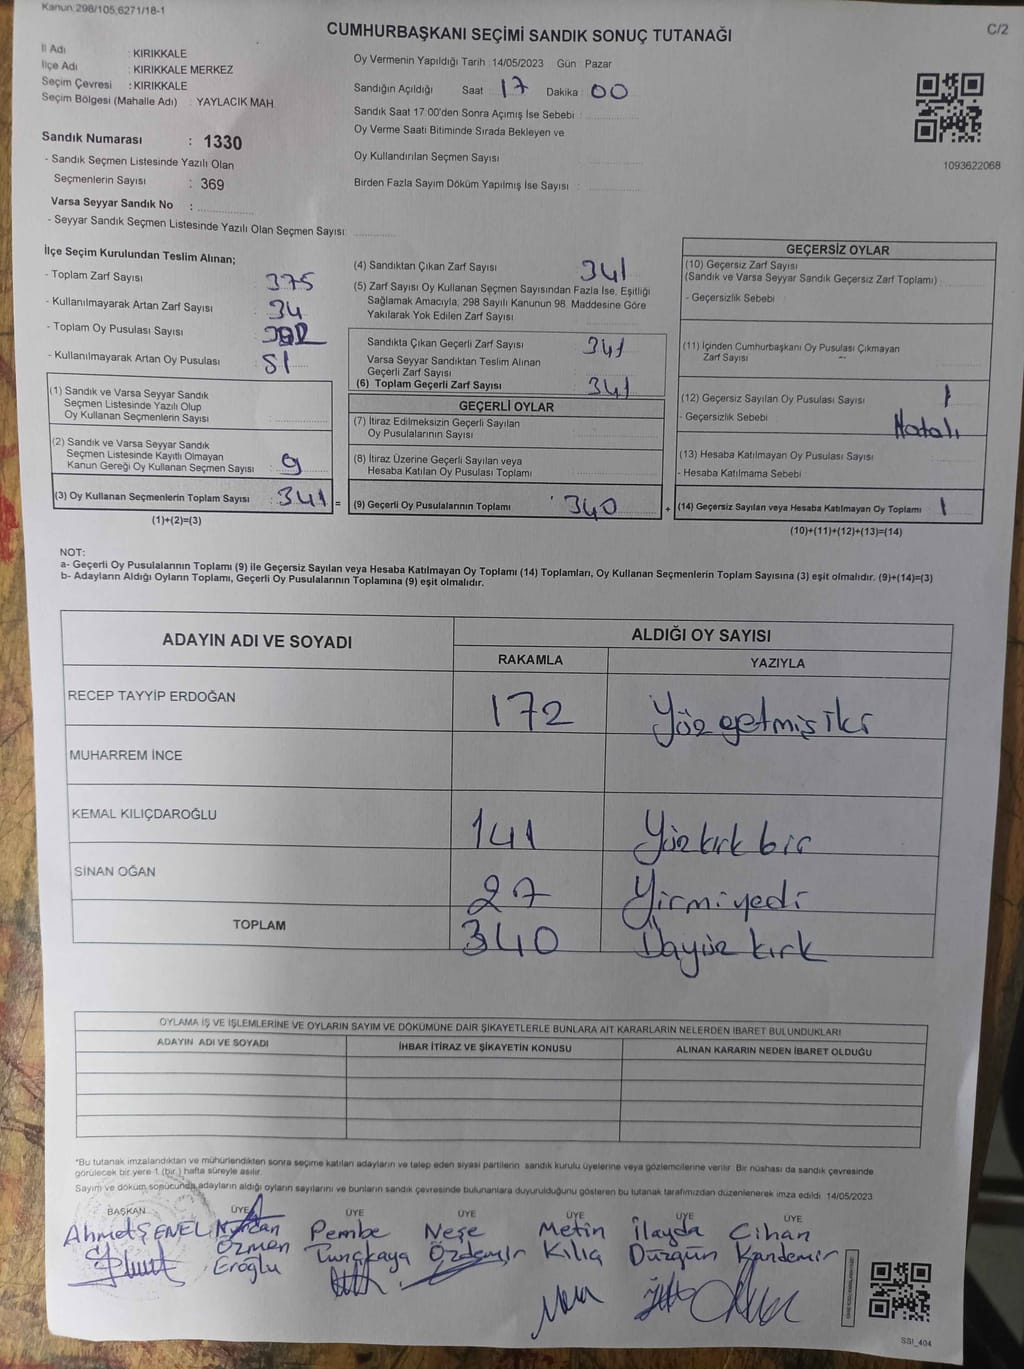 Kanun:298/105,6271/18-1
C/2
CUMHURBAŞKANI SEÇİMİ SANDIK SONUÇ TUTANAĞI
İl Adı : KIRIKKALE
İlçe Adı : KIRIKKALE MERKEZ
Seçim Çevresi : KIRIKKALE
Seçim Bölgesi (Mahalle Adı) : YAYLACIK MAH.
Sandık Numarası : 1330
- Sandık Seçmen Listesinde Yazılı Olan
Seçmenlerin Sayısı : 369
Varsa Seyyar Sandık No :
- Seyyar Sandık Seçmen Listesinde Yazılı Olan Seçmen Sayısı:
Oy Vermenin Yapıldığı Tarih : 14/05/2023 Gün Pazar
Sandığın Açıldığı Saat 17 Dakika 00
Sandık Saat 17:00'den Sonra Açımış İse Sebebi :
Oy Verme Saati Bitiminde Sırada Bekleyen ve
Oy Kullandırılan Seçmen Sayısı
Birden Fazla Sayım Döküm Yapılmış İse Sayısı :
1093622068
İlçe Seçim Kurulundan Teslim Alınan;
- Toplam Zarf Sayısı 375
- Kullanılmayarak Artan Zarf Sayısı 34
- Toplam Oy Pusulası Sayısı
- Kullanılmayarak Artan Oy Pusulası 51
(1) Sandık ve Varsa Seyyar Sandık
Seçmen Listesinde Yazılı Olup
Oy Kullanan Seçmenlerin Sayısı
(2) Sandık ve Varsa Seyyar Sandık
Seçmen Listesinde Kayıtlı Olmayan
Kanun Gereği Oy Kullanan Seçmen Sayısı : 9
(3) Oy Kullanan Seçmenlerin Toplam Sayısı : 341 =
(1)+(2)=(3)
(4) Sandıktan Çıkan Zarf Sayısı 341
(5) Zarf Sayısı Oy Kullanan Seçmen Sayısından Fazla İse, Eşitliği
Sağlamak Amacıyla; 298 Sayılı Kanunun 98. Maddesine Göre
Yakılarak Yok Edilen Zarf Sayısı
Sandıkta Çıkan Geçerli Zarf Sayısı 341
Varsa Seyyar Sandıktan Teslim Alınan
Geçerli Zarf Sayısı
(6) Toplam Geçerli Zarf Sayısı 341
GEÇERLİ OYLAR
(7) İtiraz Edilmeksizin Geçerli Sayılan
Oy Pusulalarının Sayısı
(8) İtiraz Üzerine Geçerli Sayılan veya
Hesaba Katılan Oy Pusulası Toplamı
(9) Geçerli Oy Pusulalarının Toplamı 340 +
GEÇERSİZ OYLAR
(10) Geçersiz Zarf Sayısı
(Sandık ve Varsa Seyyar Sandık Geçersiz Zarf Toplamı) :
- Geçersizlik Sebebi
(11) İçinden Cumhurbaşkanı Oy Pusulası Çıkmayan
Zarf Sayısı
(12) Geçersiz Sayılan Oy Pusulası Sayısı 1
- Geçersizlik Sebebi Hatalı
(13) Hesaba Katılmayan Oy Pusulası Sayısı
- Hesaba Katılmama Sebebi
(14) Geçersiz Sayılan veya Hesaba Katılmayan Oy Toplamı 1
(10)+(11)+(12)+(13)=(14)
NOT:
a- Geçerli Oy Pusulalarının Toplamı (9) ile Geçersiz Sayılan veya Hesaba Katılmayan Oy Toplamı (14) Toplamları, Oy Kullanan Seçmenlerin Toplam Sayısına (3) eşit olmalıdır. (9)+(14)=(3)
b- Adayların Aldığı Oyların Toplamı, Geçerli Oy Pusulalarının Toplamına (9) eşit olmalıdır.
ADAYIN ADI VE SOYADI ALDIĞI OY SAYISI
RAKAMLA YAZIYLA
RECEP TAYYİP ERDOĞAN 172 Yüz yetmiş iki
MUHARREM İNCE
KEMAL KILIÇDAROĞLU 141 Yüz kırk bir
SİNAN OĞAN 27 Yirmi yedi
TOPLAM 340 Üçyüz kırk
OYLAMA İŞ VE İŞLEMLERİNE VE OYLARIN SAYIM VE DÖKÜMÜNE DAİR ŞİKAYETLERLE BUNLARA AİT KARARLARIN NELERDEN İBARET BULUNDUKLARI
ADAYIN ADI VE SOYADI İHBAR İTİRAZ VE ŞİKAYETİN KONUSU ALINAN KARARIN NEDEN İBARET OLDUĞU
*Bu tutanak imzalandıktan ve mühürlendikten sonra seçime katılan adayların ve talep eden siyasi partilerin sandık kurulu üyelerine veya gözlemcilerine verilir. Bir nüshası da sandık çevresinde
görülecek bir yere 1 (bir) hafta süreyle asılır.
Sayım ve döküm sonucunda adayların aldığı oyların sayılarını ve bunların sandık çevresinde bulunanlara duyurulduğunu gösteren bu tutanak tarafımızdan düzenlenerek imza edildi. 14/05/2023
BAŞKAN ÜYE ÜYE ÜYE ÜYE ÜYE ÜYE
Ahmet ŞENEL Nurcan Pembe Neşe Metin İlayda Cihan
Özmen Tunçkaya Özdemir Kılıç Durgun Kandemir
Eroğlu
SSI_404